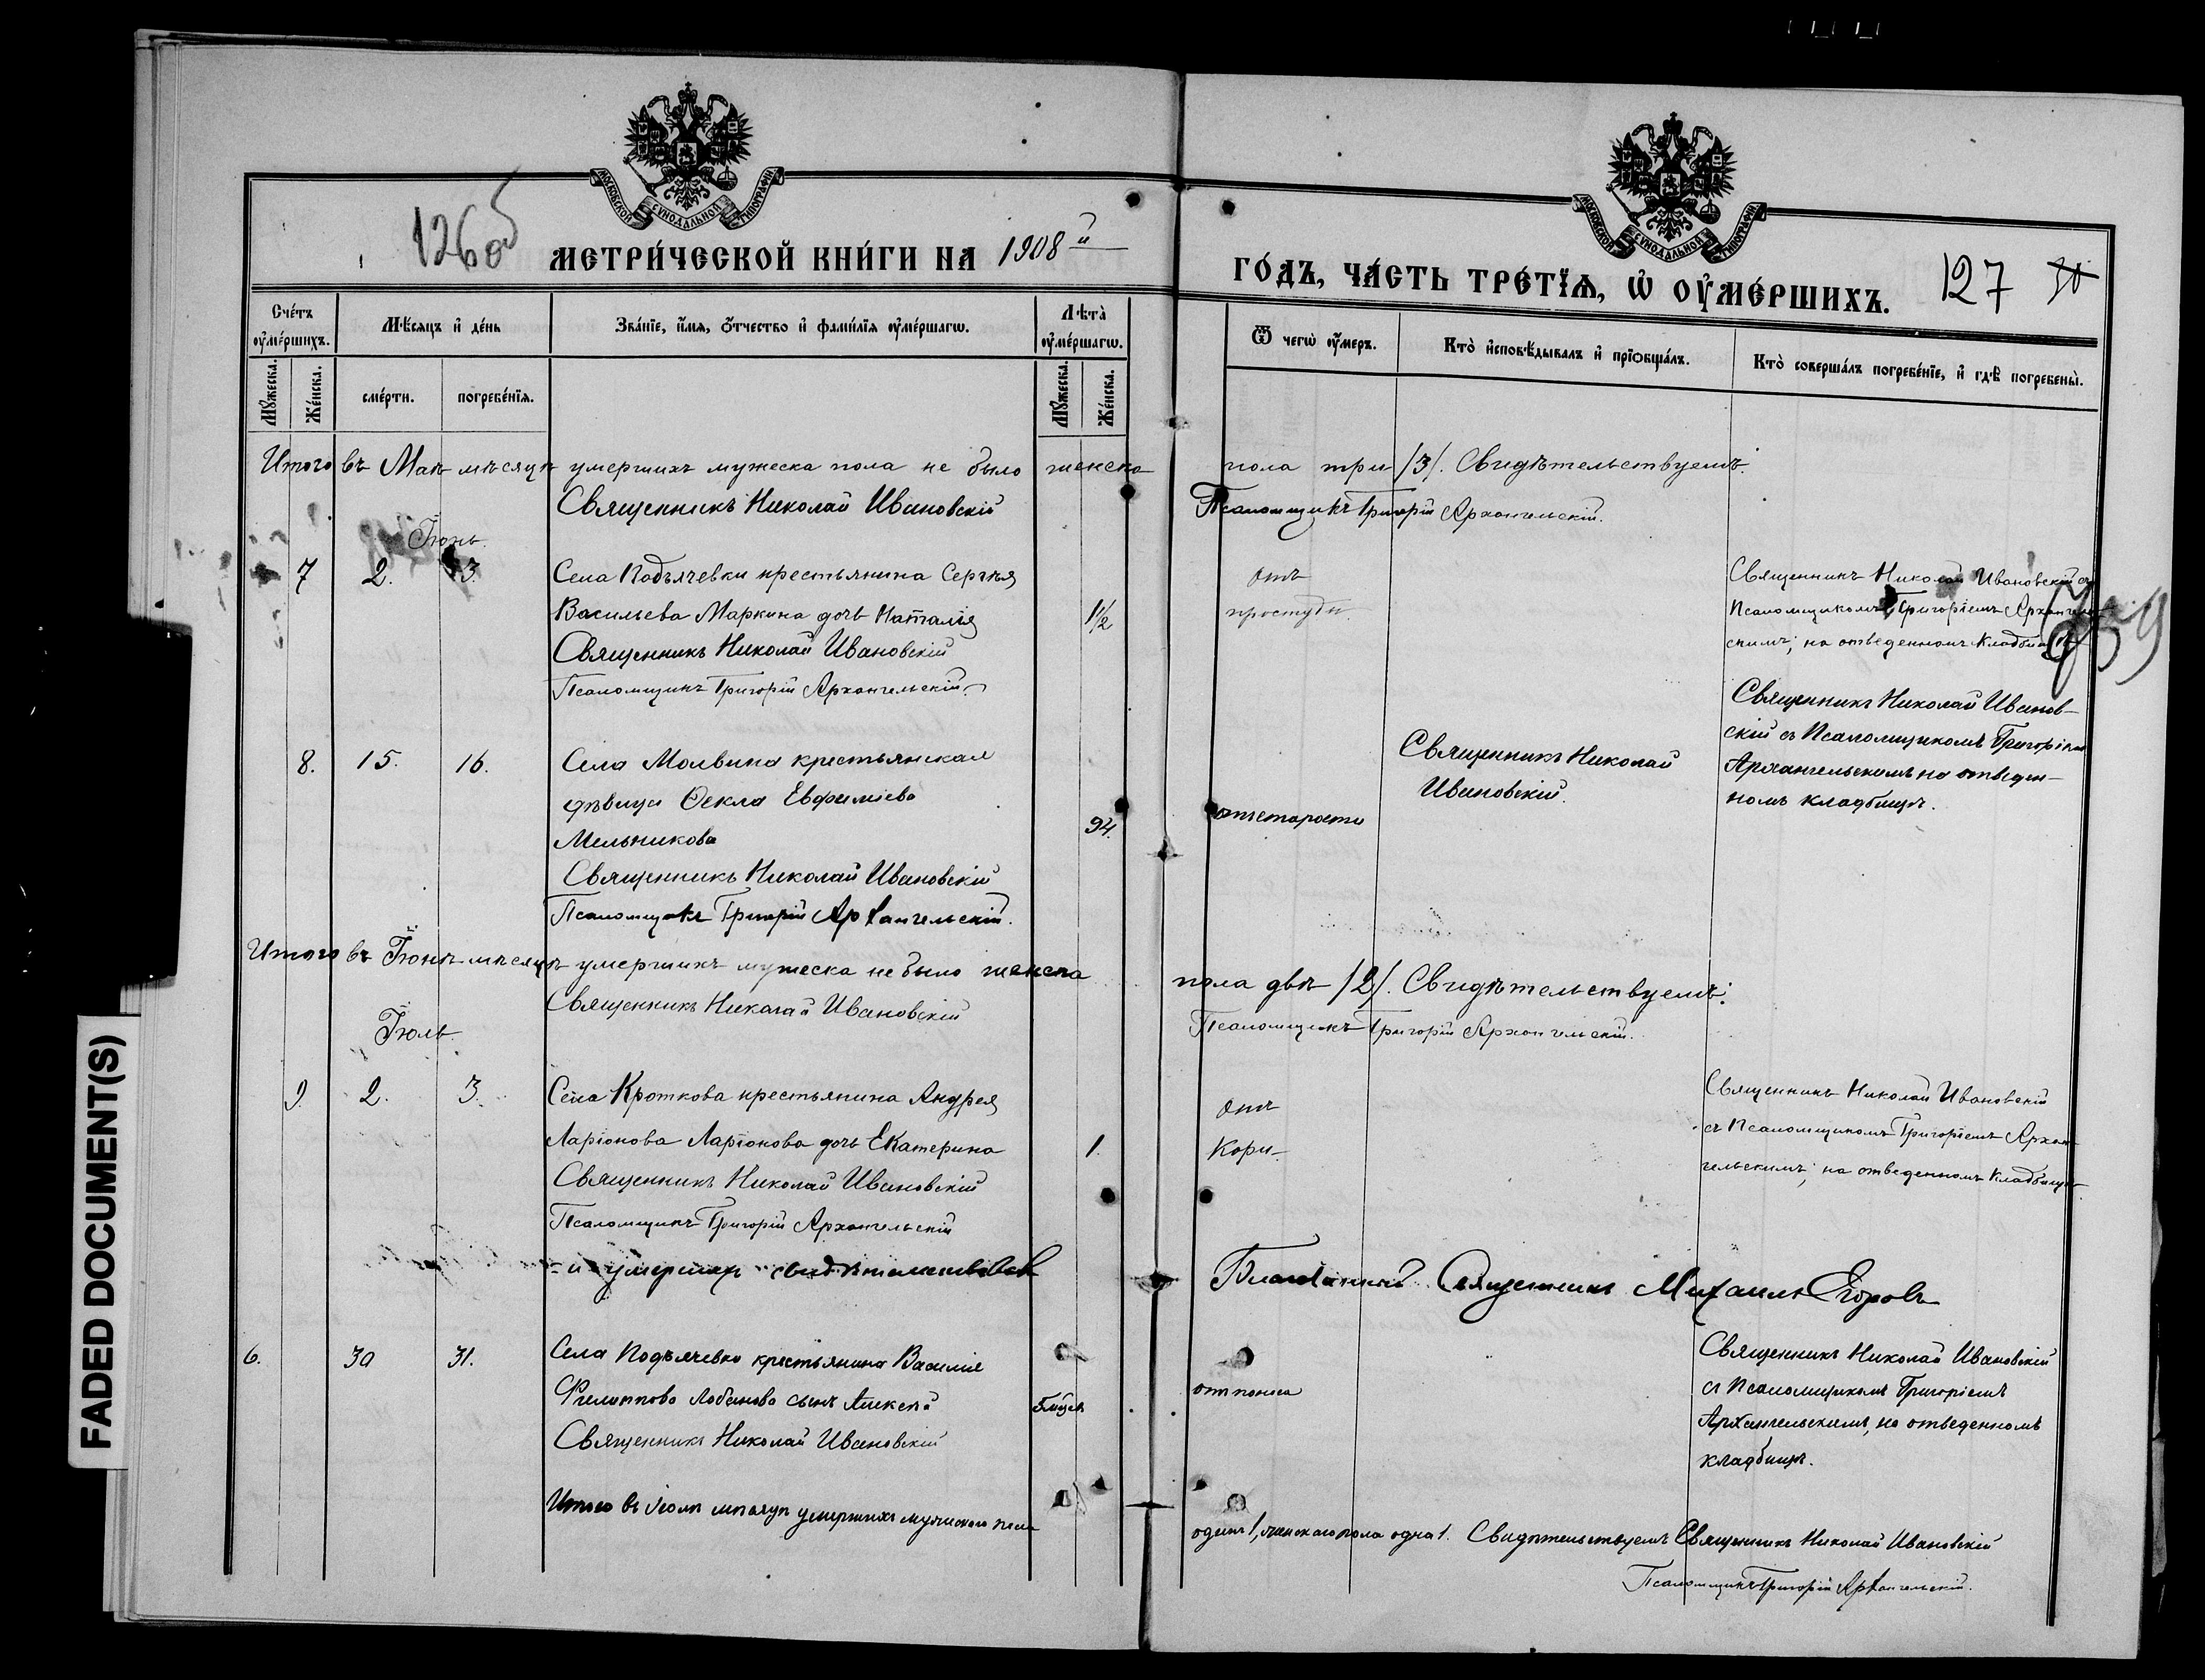 МОСКОВСКОЙ СУНОДАЛЬНОЙ ТИПОГРАФІИ
МОСКОВСКОЙ СУНОДАЛЬНОЙ ТИПОГРАФІИ
126об
МЕТРИ́ЧЕСКОЙ КНИ́ГИ НА 1908й
ГО́ДЪ, ЧА́СТЬ ТРЕ́ТЇѦ, Ѡ҆ ОУ҆МЕ́РШИХЪ.
127 30
Сче́тъ оу҆ме́ршихъ.
Мѣ́сяцъ и҆ де́нь
Зва́нїе, и҆́мя, ѻ҆́тчество и҆ фами́лїя оу҆ме́ршагѡ.
Лѣта̀ оу҆ме́ршагѡ.
Ѿ чегѡ̀ оу҆́меръ.
Кто̀ и҆сповѣ́дывалъ и҆ прїѡбща́лъ.
Кто̀ соверша́лъ погребе́нїе, и҆ гдѣ̀ погребены̀.
Му́жеска.
Же́нска.
сме́рти.
погребе́нїя.
Му́жеска.
Же́нска.
Итого въ Маѣ мѣсяцѣ умершихъ мужеска пола не было женска пола три /3/. Свидѣтельствуемъ:
Священникъ Николай Ивановскій
Псаломщикъ Григорій Архангельскій.
Іюнь.
7 2. 3. Села Подъячевки крестьянина Сергѣя
Васильева Маркина дочь Наталія
1½
Отъ
простуды.
Священникъ Николай Ивановскій
Псаломщикъ Григорій Архангельскій.
Священникъ Николай Ивановскій съ
Псаломщикомъ Григоріемъ Архангель-
скимъ; на отведенномъ кладбищѣ
8. 15. 16. Села Молвина крестьянская
дѣвица Ѳекла Евфиміева
Мельникова
94.
отъ старости
Священникъ Николай Ивановскій
Псаломщикъ Григорій Архангельскій.
Священникъ Николай
Ивановскій.
Священникъ Николай Иванов-
скій съ Псаломщикомъ Григоріемъ
Архангельскимъ на отведен-
номъ кладбищѣ.
Итого въ Іюнѣ мѣсяцѣ умершихъ мужеска не было женска пола двѣ /2/. Свидѣтельствуемъ:
Священникъ Николай Ивановскій
Псаломщикъ Григорій Архангельскій.
Іюль.
9. 2. 3. Села Кроткова крестьянина Андрея
Ларіонова Ларіонова дочь Екатерина
1.
Отъ
Кори
Священникъ Николай Ивановскій
Псаломщикъ Григорій Архангельскій
Священникъ Николай Ивановскій
съ Псаломщикомъ Григоріемъ Архан-
гельскимъ; на отведенномъ кладбищѣ
Священникъ Михаилъ Егоровъ
6. 30 31. Села Подъячевки крестьянина Василія
Филиппова Лобанова сынъ Алексѣй
5 мѣсяц.
отъ поноса
Священникъ Николай Ивановскій
Священникъ Николай Ивановскій
съ Псаломщикомъ Григоріемъ
Архангельскимъ, на отведенномъ
кладбищѣ.
Итого въ Іюлѣ мѣсяцѣ умершихъ мужского пола одинъ 1, женскаго пола одна 1. Свидѣтельствуемъ Священникъ Николай Ивановскій
Псаломщикъ Григорій Архангельскій.
FADED DOCUMENT(S)